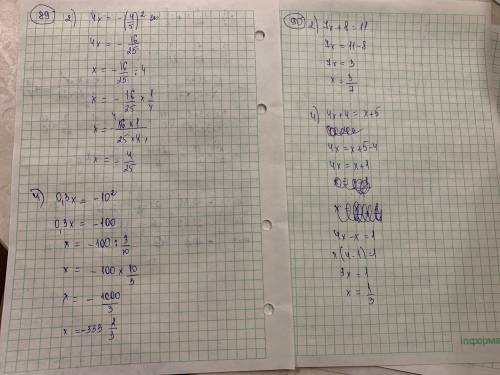 89
2) 4x = -(4/5)²
4x = - 16/25
x = - 16/25 : 4
x = - 16/25 × 1/4
x = - 16×1/25×4
x = - 4/25
4) 0,3x = -10²
0,3x = -100
x = -100 : 3/10
x = -100 × 10/3
x = - 1000/3
x = -333 1/3
90
2) 7x + 8 = 11
7x = 11-8
7x = 3
x = 3/7
4) 4x+4 = x+5
4x = x+5-4
4x = x+1
4x - x = 1
x(4-1)=1
3x = 1
x = 1/3